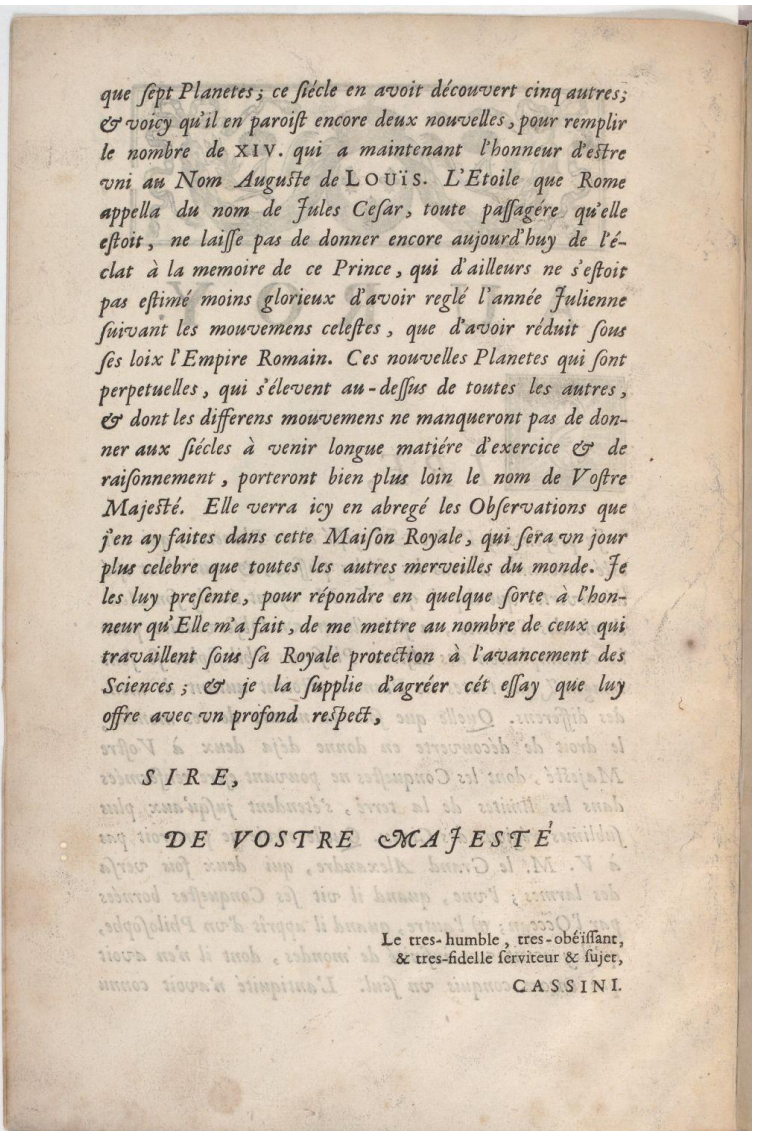 que ſept Planetes; ce ſiécle en avoit découvert cinq autres;
& voicy qu'il en paroiſt encore deux nouvelles, pour remplir
le nombre de XIV. qui a maintenant l'honneur d'eſtre
vni au Nom Auguſte de LOUÏS. L'Etoile que Rome
appella du nom de Jules Ceſar, toute paſſagére qu'elle
eſtoit, ne laiſſe pas de donner encore aujourd'huy de l'é-
clat à la memoire de ce Prince, qui d'ailleurs ne s'eſtoit
pas eſtimé moins glorieux d'avoir reglé l'année Julienne
ſuivant les mouvemens celeſtes, que d'avoir réduit ſous
ſes loix l'Empire Romain. Ces nouvelles Planetes qui ſont
perpetuelles, qui s'élevent au-deſſus de toutes les autres,
& dont les differens mouvemens ne manqueront pas de don-
ner aux ſiécles à venir longue matiére d'exercice & de
raiſonnement, porteront bien plus loin le nom de Voſtre
Majeſté. Elle verra icy en abregé les Obſervations que
j'en ay faites dans cette Maiſon Royale, qui ſera vn jour
plus celebre que toutes les autres merveilles du monde. Je
les luy preſente, pour répondre en quelque ſorte à l'hon-
neur qu'Elle m'a fait, de me mettre au nombre de ceux qui
travaillent ſous ſa Royale protection à l'avancement des
Sciences; & je la ſupplie d'agréer cét eſſay que luy
offre avec vn profond reſpect,
SIRE,
DE VOSTRE MAJESTÉ
Le tres-humble, tres-obéïſſant,
& tres-fidelle ſerviteur & ſujet,
CASSINI.